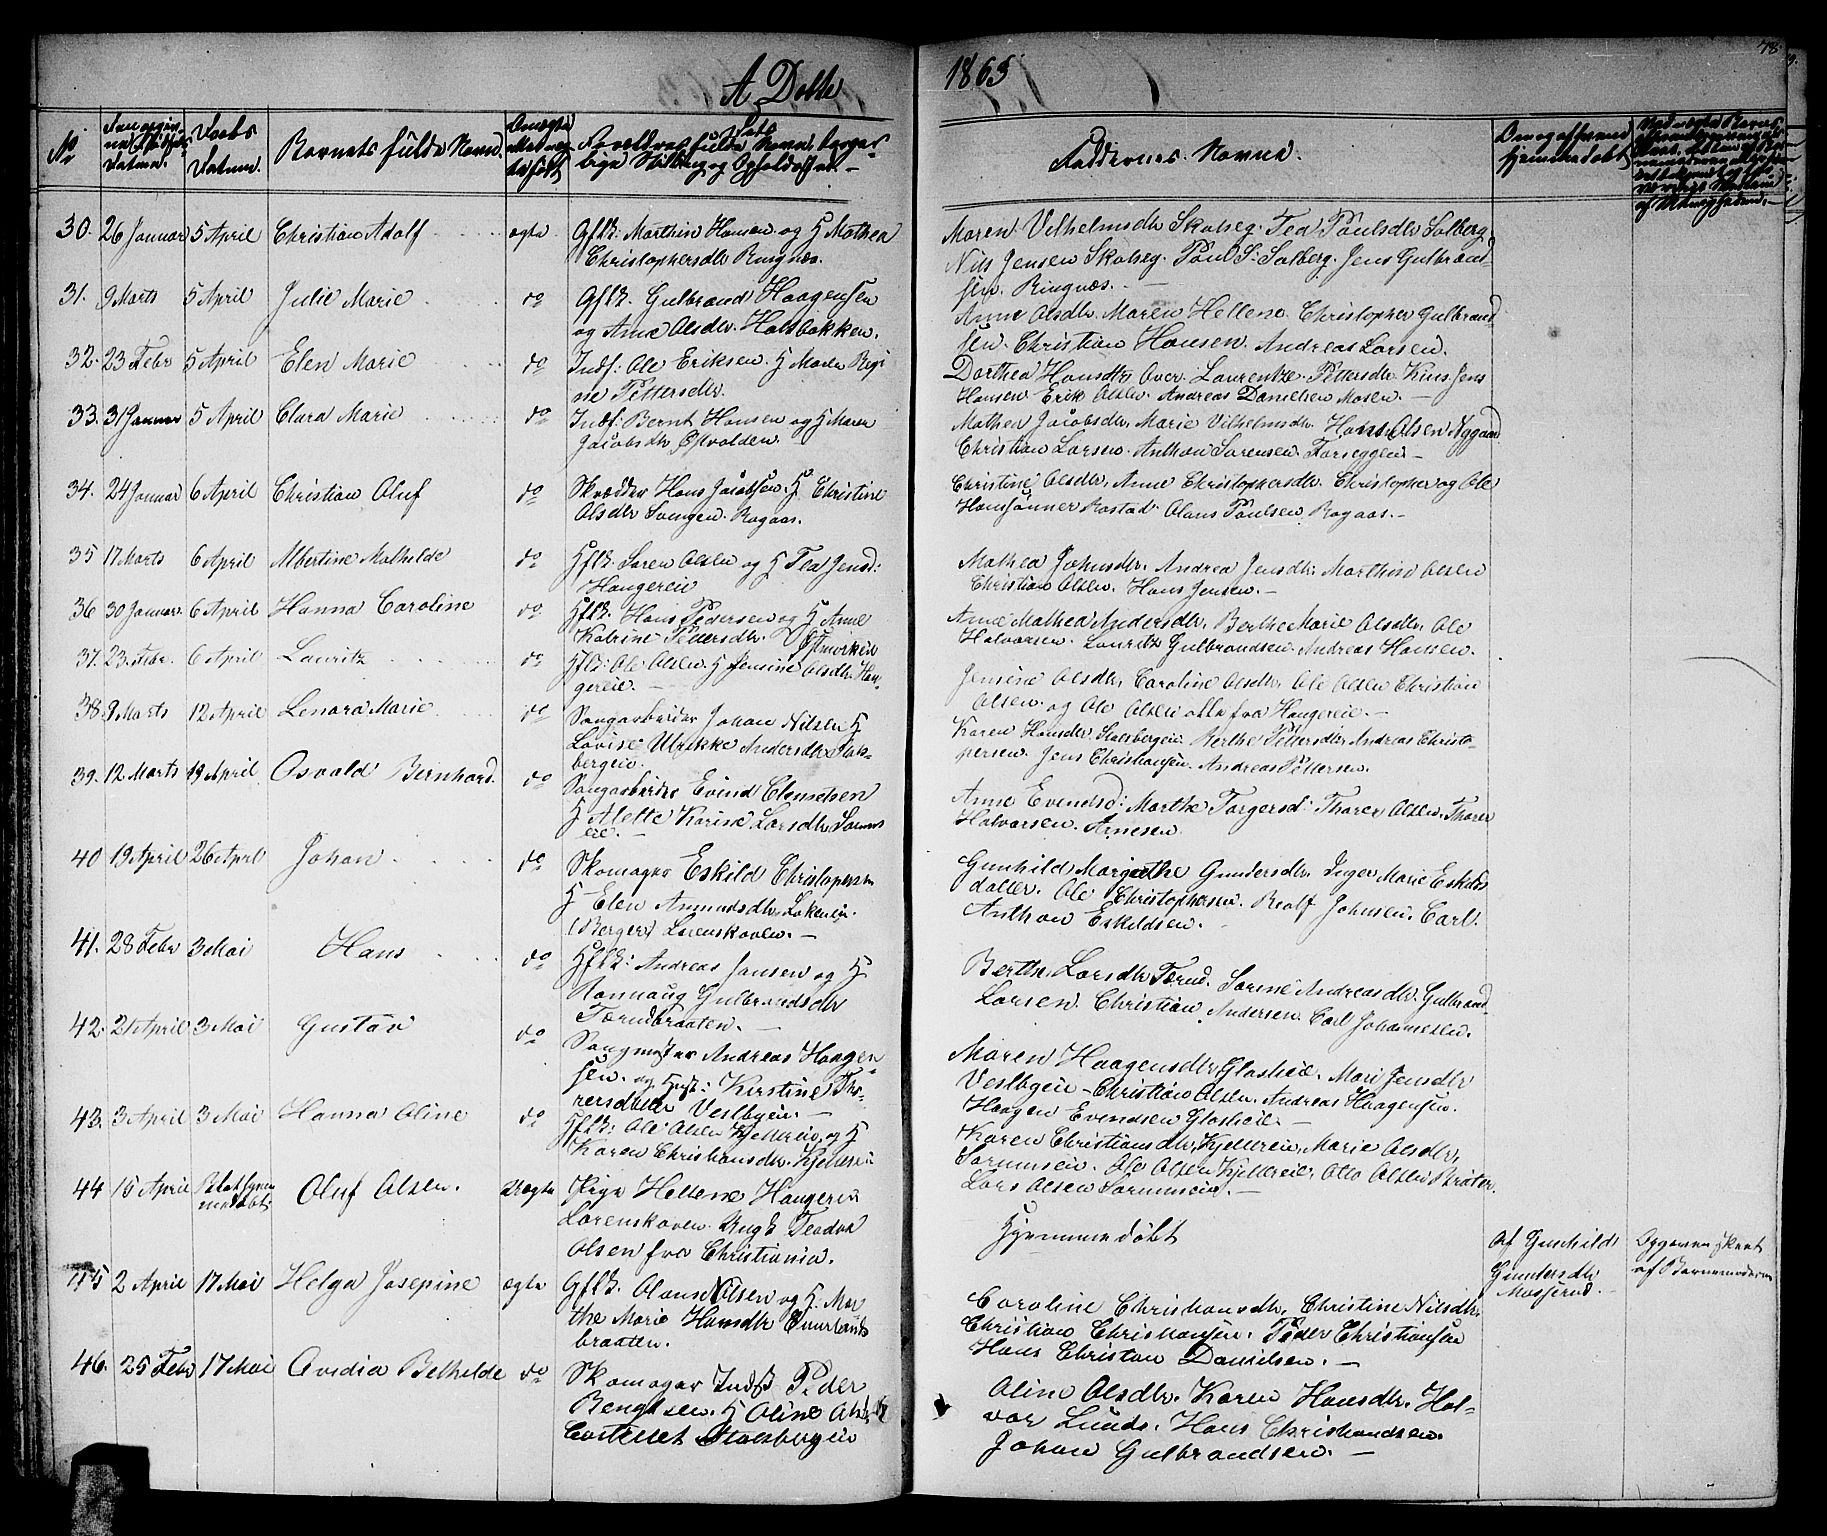 A Døbte
1863
78.
No
Daabs Datum.
Barnets fulde Navn.
Faddernes Navne.
30. 26 Januar 5 April Christian Adolf ægte Gfbr: Marthin Hansen og H Mathea
Christophersdtr Ringnæs.
Maren Vilhelmsdtr Skatseg. Tea Poulsdtr Solberg
Nils Jensen Skatseg. Poul S. Solberg. Jens Gulbrand-
sen. Ringnæs.
31. 9 Marts 5 April Julie Marie do Gfbr. Gulbrand Haagensen
og Anne Olsdtr. Holsbakken.
Anne Olsdtr. Maren Hellene Christopher Gulbrand
sen. Christian Hansen. Andreas Larsen.
32. 23 Febr 5 April Elen Marie do Inds: Ole Eriksen. H Maren Regi
ne Pettersdtr.
Dorthea Hansdtr Aver. Laurentze Pettersdtr Jens
Hansen Erik Olsen. Andreas Danielsen Mosen.
33. 31 Januar 5 April Clara Marie do Inds: Bernt Hansen og H Maren
Jacobsdtr Østvolden
Mathea Jacobsdtr. Marie Vilhelmsdtr. Hans Olsen Nygaard
Christian Larsen. Anthon Sørensen Torseggen
34. 24 Januar 6 April Christian Oluf do Skrædder Hans Jacobsen H Christine
Olsdtr Svingen. Ragaas.
Christine Olsdtr. Anne Christophersdtr. Christopher og Ole
Hanssønner Rastad. Olaus Poulsen Ragaas.
35 17 Marts 6 April Albertine Mathilde do Hfbr: Søren Olsen og H Tea Jensd:
Haugereie
Mathea Johnsdtr. Andrea Jensdtr. Marthin Olsen
Christian Olsen. Hans Jensen.
36 30 Januar 6 April Hanna Caroline do Hfbr. Hans Pedersen og H Anne
Katrine Pedersdtr.
Anne Mathea Andersdtr. Berthe Marie Olsdtr. Ole
Halvorsen. Lauritz Gulbrandsen. Andreas Hansen.
37. 23 Febr. 6 April Lauritz do Hfbr: Ole Olsen H Jensine Olsdtr. Hau-
gereie.
Jensine Olsdtr. Caroline Olsdtr. Ole Olsen Christian
Olsen og Ole Olsen alle fra Haugereie.
38. 9 Marts 12 April Lenara Marie do Saugarbeider Johan Nilsen H
Lovise Ulrikke Andersdtr Stals-
bergeie.
Karen Hansdtr. Stalsbergeie. Berthe Pettersdtr Andreas Christo-
persen. Jens Christiansen. Andreas Pettersen.
39. 12 Marts 19 April Osvald Bernhard do Saugarbeider Evind Clemetsen
H Alette Karine Larsdtr
eie.
Anne Evendsd: Marthe Torgersd: Thorer Olsen. Thorer
Halvorsen. Arnesen
40 19 April 26 April Johan do Skomager Eskild Christophersen
H Elen Amundsdtr Løkeneie.
(Berger) Lørenskoven.
Gunhild Margrethe Gundersdtr. Inger Marie Eskilds
datter. Ole Christophersen. Reolf Johnsen. Carl
Anthon Eskildsen.
41. 28 Febr 3 Mai Hans do Hfbr: Andreas Jansen og H
Rannaug Gulbrandsdtr
Tærudbraaten.
Berthe Larsdtr Tærud. Sørine Andreasdtr. Gulbrand
Larsen. Christian Andersen. Carl Johannesen.
42. 21 April 3 Mai Gustav do Saugmester Andreas Haagen
sen. og Hust: Kirstine Tho-
rersdatter Veslbyeie.
Maren Haagensdtr, Glasheie. Mari Jensdtr
Veslbyeie Christian Olsen. Andreas Haagensen.
Haagen Evendsen Glasheie.
43. 3 April 3 Mai Hanna Oline do Hfbr: Ole Olsen Kjellereie og H
Karen Christiansdtr. Kjellereie
Karen Christiansdtr, Kjellereie, Marie Olsdtr,
Sørumseie. Ole Olsen Kjellereie, Otto Olsen Bråter.
Lars Olsen Sørumseie.
44 15 April Blot hjem
medøbt Oluf Olsen. Uægte Pige Hellene Haugereie
Lørenskoven. Ungk Teodor
Olsen fra Christiania.
Hjemmedøbt
Af Gunhild
Gundersdtr
Mosserud.
Opgaven skeet
af Barnemoderen
45 2 April 17 Mai Helga Josepine ægte Gfbr. Olaus Olsen og H. Mar
the Marie Hansdtr
braaten.
Caroline Christiansdtr, Christine Nilsdtr.
Christian Christiansen. Peder Christiansen
Hans Christian Danielsen.
46. 25 Febr 17 Mai Ovidia Bethilde do Skomager Inds Peder
Bengtsen. H Oline Olsdtr
Stalsbergeie
Oline Olsdtr. Karen Hansdtr. Hal-
vor Lunds. Hans Christiansen.
Johan Gulbrandsen.